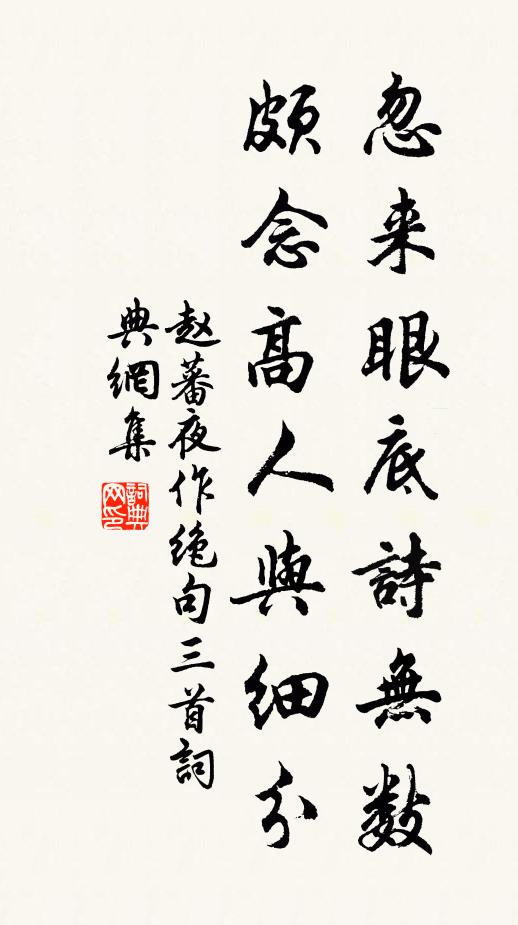 忽来眼底詩無数
頗念高人與細分
赵蕃夜作绝句三首詞
典網集
詞典
网印